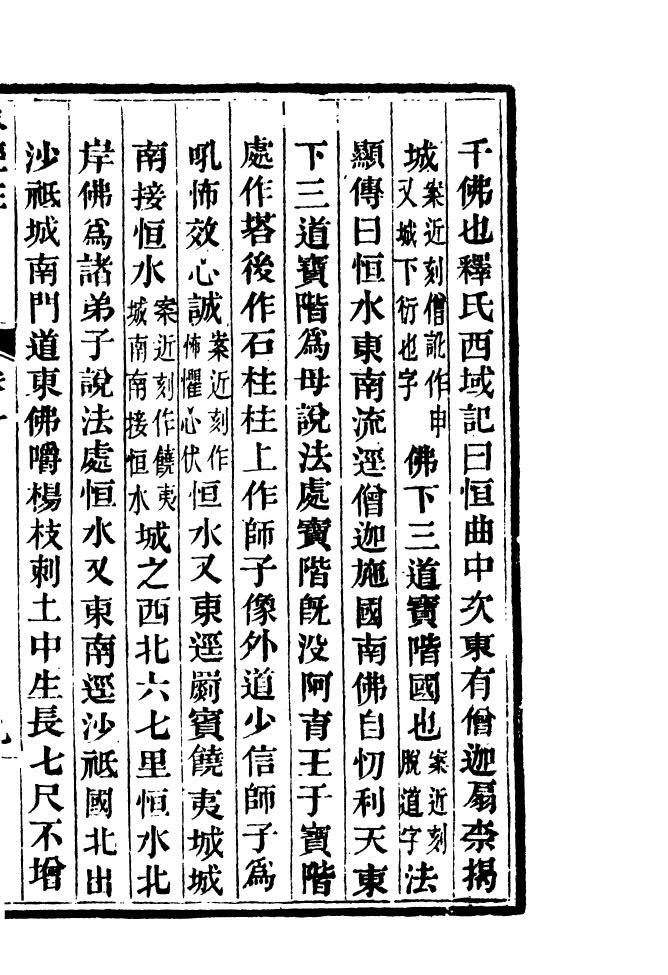 千佛也釋氏西域記曰恒曲中次東有僧迦扇柰揭
城案近刻僧訛作申又城下衍也字佛下三道寶階國也案近刻脫道字法
顯傳曰恒水東南流逕僧迦施國南佛自忉利天東
下三道寶階爲母說法處寶階既没阿育王于寶階
處作塔後作石柱柱上作師子像外道少信師子爲
吼怖效心誠案近刻作怖懼心伏恒水又東逕罽賓饒夷城城
南接恒水案近刻作饒夷城南南接恒水城之西北六七里恒水北
岸佛爲諸弟子說法處恒水又東南逕沙祗國北出
沙祗城南門道東佛嚼楊枝刺土中生長七尺不增